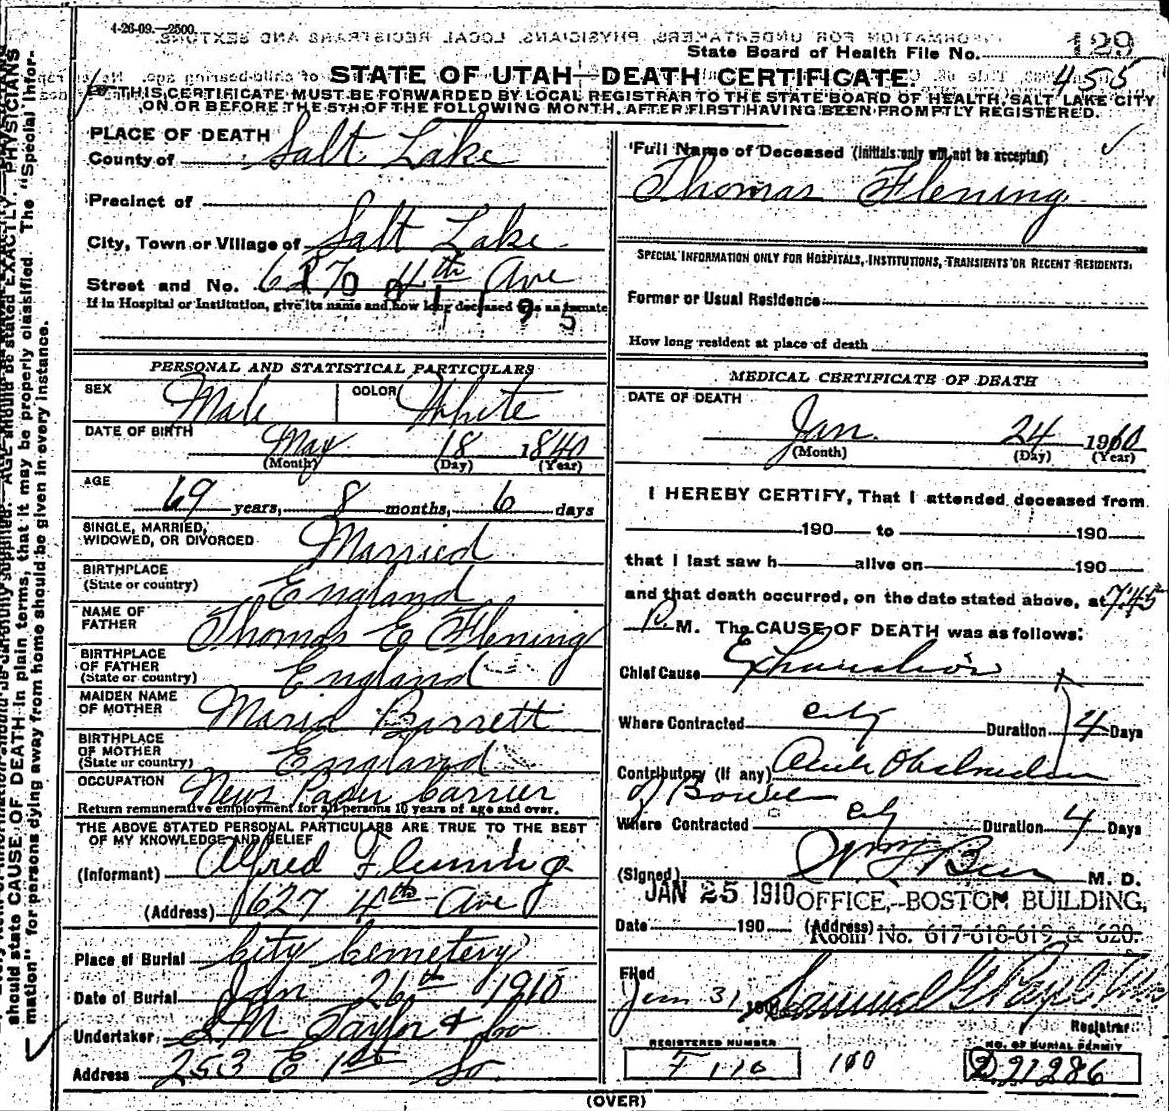 4-26-09.—2500.
State Board of Health File No. 129
455
STATE OF UTAH—DEATH CERTIFICATE
THIS CERTIFICATE MUST BE FORWARDED BY LOCAL REGISTRAR TO THE STATE BOARD OF HEALTH, SALT LAKE CITY
ON OR BEFORE THE 5TH OF THE FOLLOWING MONTH, AFTER FIRST HAVING BEEN PROMPTLY REGISTERED.
PLACE OF DEATH
County of Salt Lake
Precinct of
City, Town or Village of Salt Lake
Street and No. 627 4th Ave
If in Hospital or Institution, give its name and how long deceased was an inmate
PERSONAL AND STATISTICAL PARTICULARS
SEX Male COLOR White
DATE OF BIRTH May 18 1840
(Month) (Day) (Year)
AGE 69 years, 8 months, 6 days
SINGLE, MARRIED, WIDOWED, OR DIVORCED Married
BIRTHPLACE (State or country) England
NAME OF FATHER Thomas E Flening
BIRTHPLACE OF FATHER (State or country) England
MAIDEN NAME OF MOTHER Maria Barrett
BIRTHPLACE OF MOTHER (State or country) England
OCCUPATION News Paper Carrier
Return remunerative employment for all persons 10 years of age and over.
THE ABOVE STATED PERSONAL PARTICULARS ARE TRUE TO THE BEST
OF MY KNOWLEDGE AND BELIEF
(Informant) Alfred Fleming
(Address) 627 4th Ave
Place of Burial City Cemetery
Date of Burial Jan 26th 1910
Undertaker, S M Taylor & Co
Address 253 E 1st So.
Full Name of Deceased (Initials only will not be accepted)
Thomas Flening
SPECIAL INFORMATION ONLY FOR HOSPITALS, INSTITUTIONS, TRANSIENTS OR RECENT RESIDENTS:
Former or Usual Residence
How long resident at place of death
MEDICAL CERTIFICATE OF DEATH
DATE OF DEATH
Jan. 24 1910
(Month) (Day) (Year)
I HEREBY CERTIFY, That I attended deceased from
190 to 190
that I last saw h alive on 190
and that death occurred, on the date stated above, at 7:45
P. M. The CAUSE OF DEATH was as follows:
Chief Cause Exhaustion
Where Contracted city Duration 4 Days
Contributory (if any) Acute Obstruction
of Bowel
Where Contracted city Duration 4 Days
(Signed) M. D.
JAN 25 1910 OFFICE,--BOSTON BUILDING,
Date 190 (Address) Room No. 617-618-619 & 620.
Filed Jan 31 190 Samuel G Paul
Registrar
REGISTERED NUMBER
F 110
100
NO. OF BURIAL PERMIT
D 21286
(OVER)